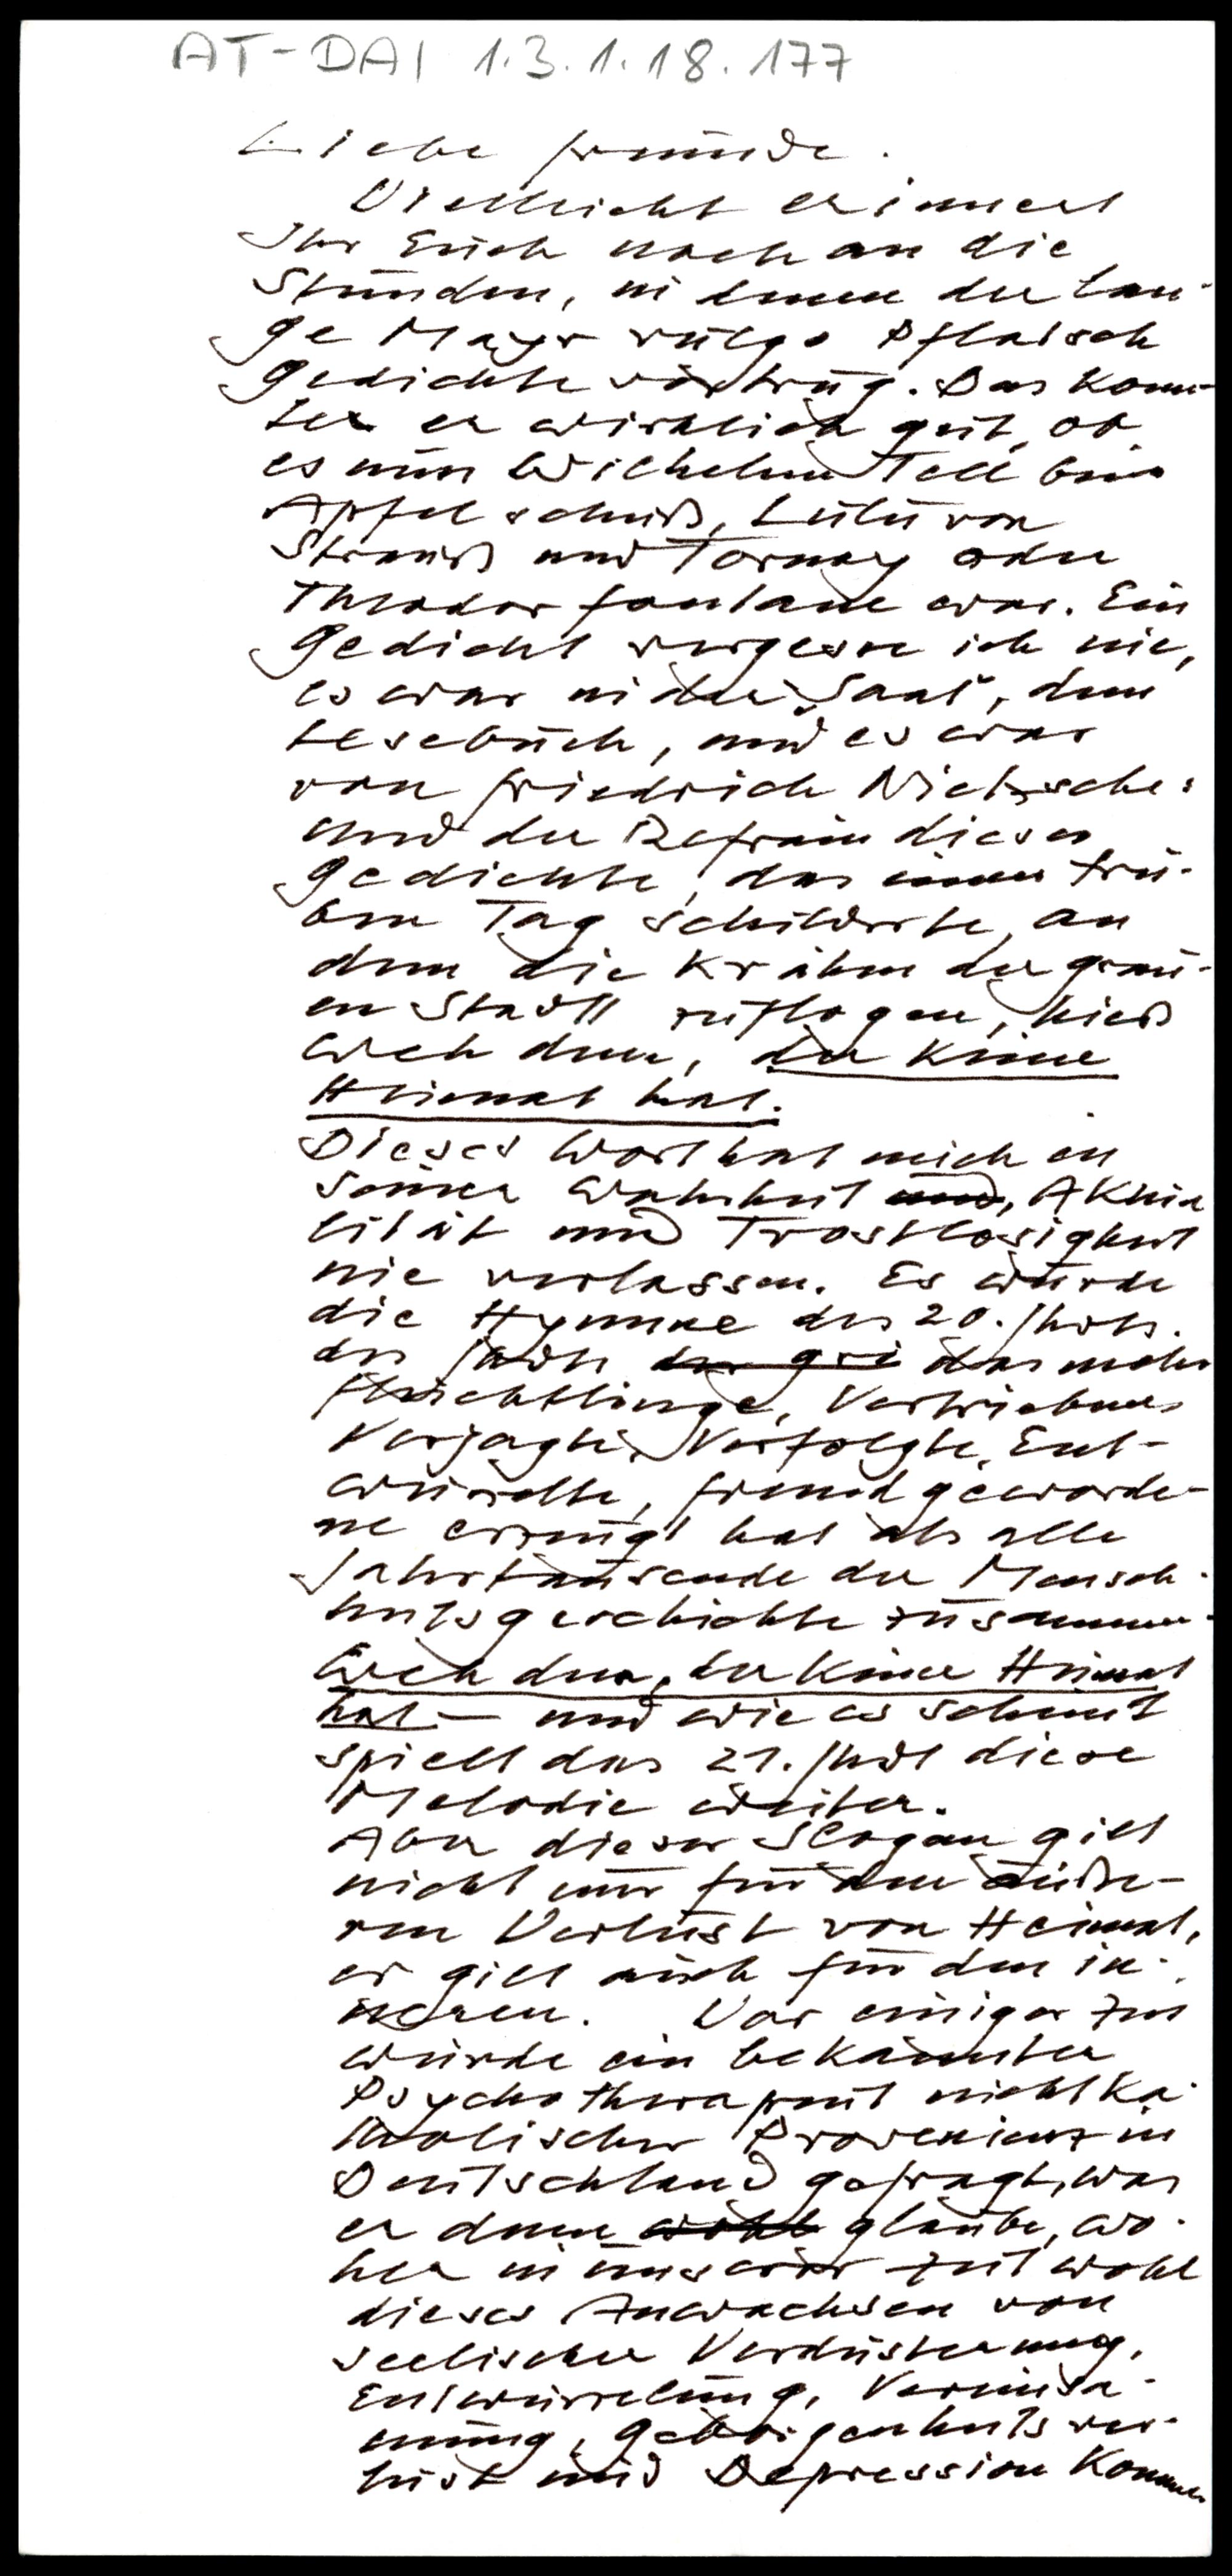 AT-DAI 1.3.1.18.177
Liebe Freunde.
Vielleicht erinnert
Ihr Euch noch an die
Stunden, in denen der lan-
ge Mayr vulgo Pflatsch
Gedichte vortrug. Das konn-
te er wirklich gut, ob
es nun Wilhelm Tell beim
Apfelschuß, Lulu von
Strauß und Tornay oder
Theodor Fontane war. Ein
Gedicht vergesse ich nie,
es war in der „Saat", dem
Lesebuch, und es war
von Friedrich Nietzsche:
und der Refrain dieses
Gedichte, das einen trü-
ben Tag schilderte, an
dem die Krähen der grau-
en Stadt zuflogen, hieß
Weh dem, der keine
Heimat hat.
Dieses Wort hat mich in
seiner Wahrheit und, Aktua
lität und Trostlosigkeit
nie verlassen. Es wurde
die Hymne des 20. Jhdts.
des Jhdts das mehr
Flüchtlinge, Vertriebene
Verjagte, Verfolgte, Ent-
wurzelte, fremd geworde-
ne erzeugt hat als alle
Jahrtausende der Mensch-
heitsgeschichte zusammen.
Weh dem, der keine Heimat
hat – und wie es scheint
spielt das 21. Jhdt diese
Melodie weiter.
Aber dieser Slogan gilt
nicht nur für den äuße-
ren Verlust von Heimat,
er gilt auch für den in-
neren. Vor einiger Zeit
wurde ein bekannter
Psychotherapeut nicht ka-
tholischer Provenienz in
Deutschland gefragt, was
er denn wohl glaube, wo-
her in unserer Zeit wohl
dieses Anwachsen von
seelischer Verdüsterung,
Entwurzelung, Vereinsa-
mung, Geborgenheitsver-
lust und Depression komme